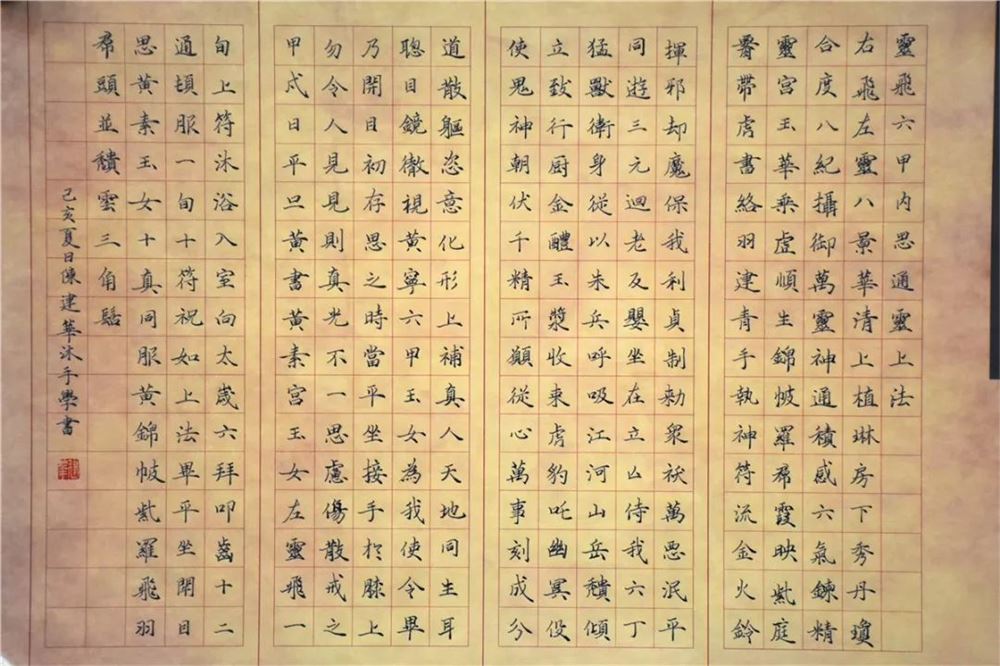 靈飛六甲內思通靈上法
右飛左靈八景華清上植琳房下秀丹瓊
合度八紀攝御萬靈神通積感六氣鍊精
靈宮玉華乘虛順生錦帔羅帬霞映紫庭
腰帶虎書絡羽建青手執神符流金火鈴
揮邪却魔保我利貞制勑衆祅萬惡泯平
同遊三元迴老反嬰坐在立亡侍我六丁
猛獸衛身從以朱兵呼吸江河山岳頹傾
立致行厨金醴玉漿收束虎豹吒幽冥役
使鬼神朝伏千精所願從心萬事刻成分
道散軀恣意化形上補真人天地同生耳
聰目鏡徹視黃寧六甲玉女為我使令畢
乃開目初存思之時當平坐接手於膝上
勿令人見見則真光不一思慮傷散戒之
甲戍日平旦黃書黃素宮玉女左靈飛一
旬上符沐浴入室向太歲六拜叩齒十二
通頓服一旬十符祝如上法畢平坐閉目
思黃素玉女十真同服黃錦帔紫羅飛羽
帬頭並頹雲三角髻
己亥夏日陳建華沐手學書